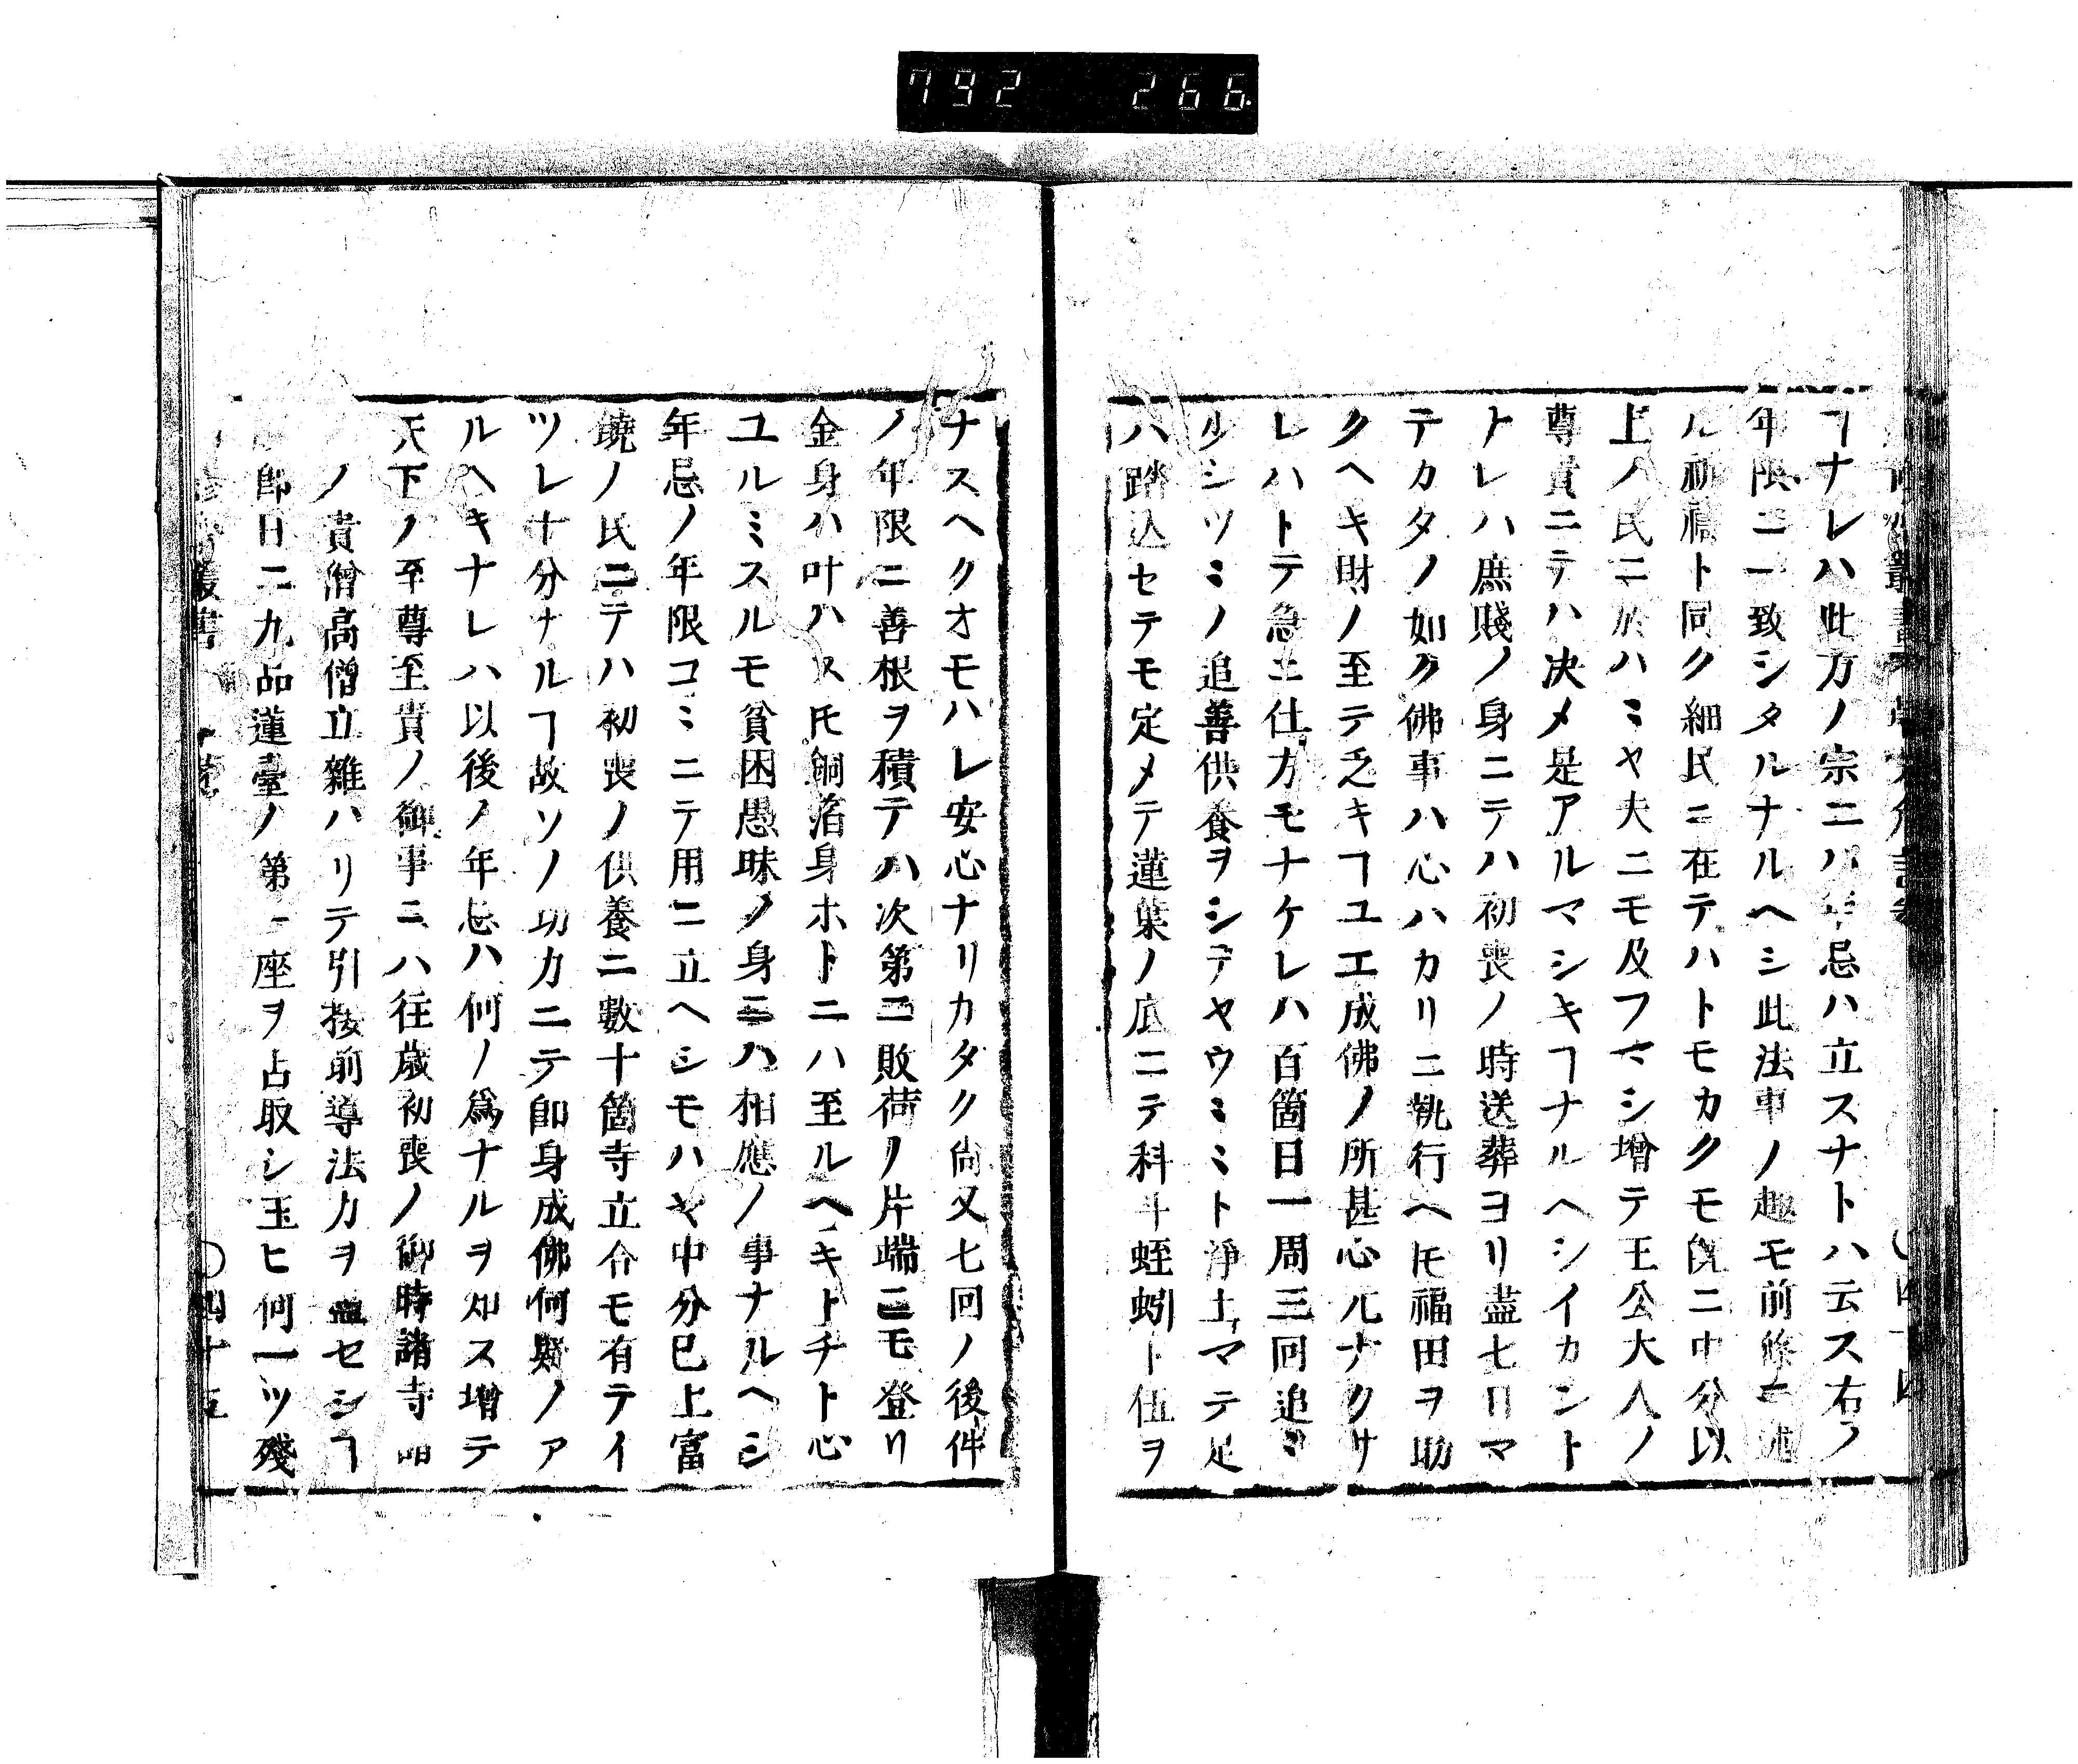 792 266
ヿナレハ此方ノ宗ニハ年忌ハ立スナトハ云ス右ノ
年限ニ一致シタルナルヘシ此法事ノ趣モ前條ニ述
ル祈禱ト同ク細民ニ在テハトモカクモ既ニ中分以
上ノ氏ニ於ハミヤ夫ニモ及フマシ増テ王公大人ノ
尊貴ニテハ决メ是アルマシキヿナルヘシイカント
トレハ庶賤ノ身ニテハ初喪ノ時送葬ヨリ盡七日マ
テカタノ如ク佛事ハ心ハカリニ執行ヘ𪜈福田ヲ助
クヘキ財ノ至テ乏キヿユエ成佛ノ所甚心元ナクサ
レハトテ急ニ仕方モナケレハ百箇日一周三回追ミ
ルシツミノ追善供養ヲシテヤウミミト淨土マテ足
ハ踏込セテモ定メテ蓮葉ノ底ニテ科斗蛭蚓ト伍ヲ
ナスヘクオモハレ安心ナリカタク尙又七回ノ後件
ノ年限ニ善根ヲ積テハ次第ニ敗荷ノ片端ニモ登リ
金身ハ叶ハス𪜈銅箔身ホトニハ至ルヘキトチト心
ユルミスルモ貧困愚昧ノ身ニハ相應ノ事ナルヘシ
年忌ノ年限コミニテ用ニ立ヘシモハヤ中分已上富
饒ノ氏ニテハ初喪ノ供養ニ數十箇寺立合モ有テイ
ツレ十分ナルヿ故ソノ功力ニテ卽身成佛何疑ノア
ルヘキナレハ以後ノ年忌ハ何ノ爲ナルヲ知ス增テ
天下ノ至尊至貴ノ御事ニハ往歲初喪ノ御時諸寺諸
ノ貴僧高僧立雜ハリテ引接前導法力ヲ盡セシヿ
卽日ニ九品蓮臺ノ第一座ヲ占取シ玉ヒ何一ツ殘
叢書
〇四十五